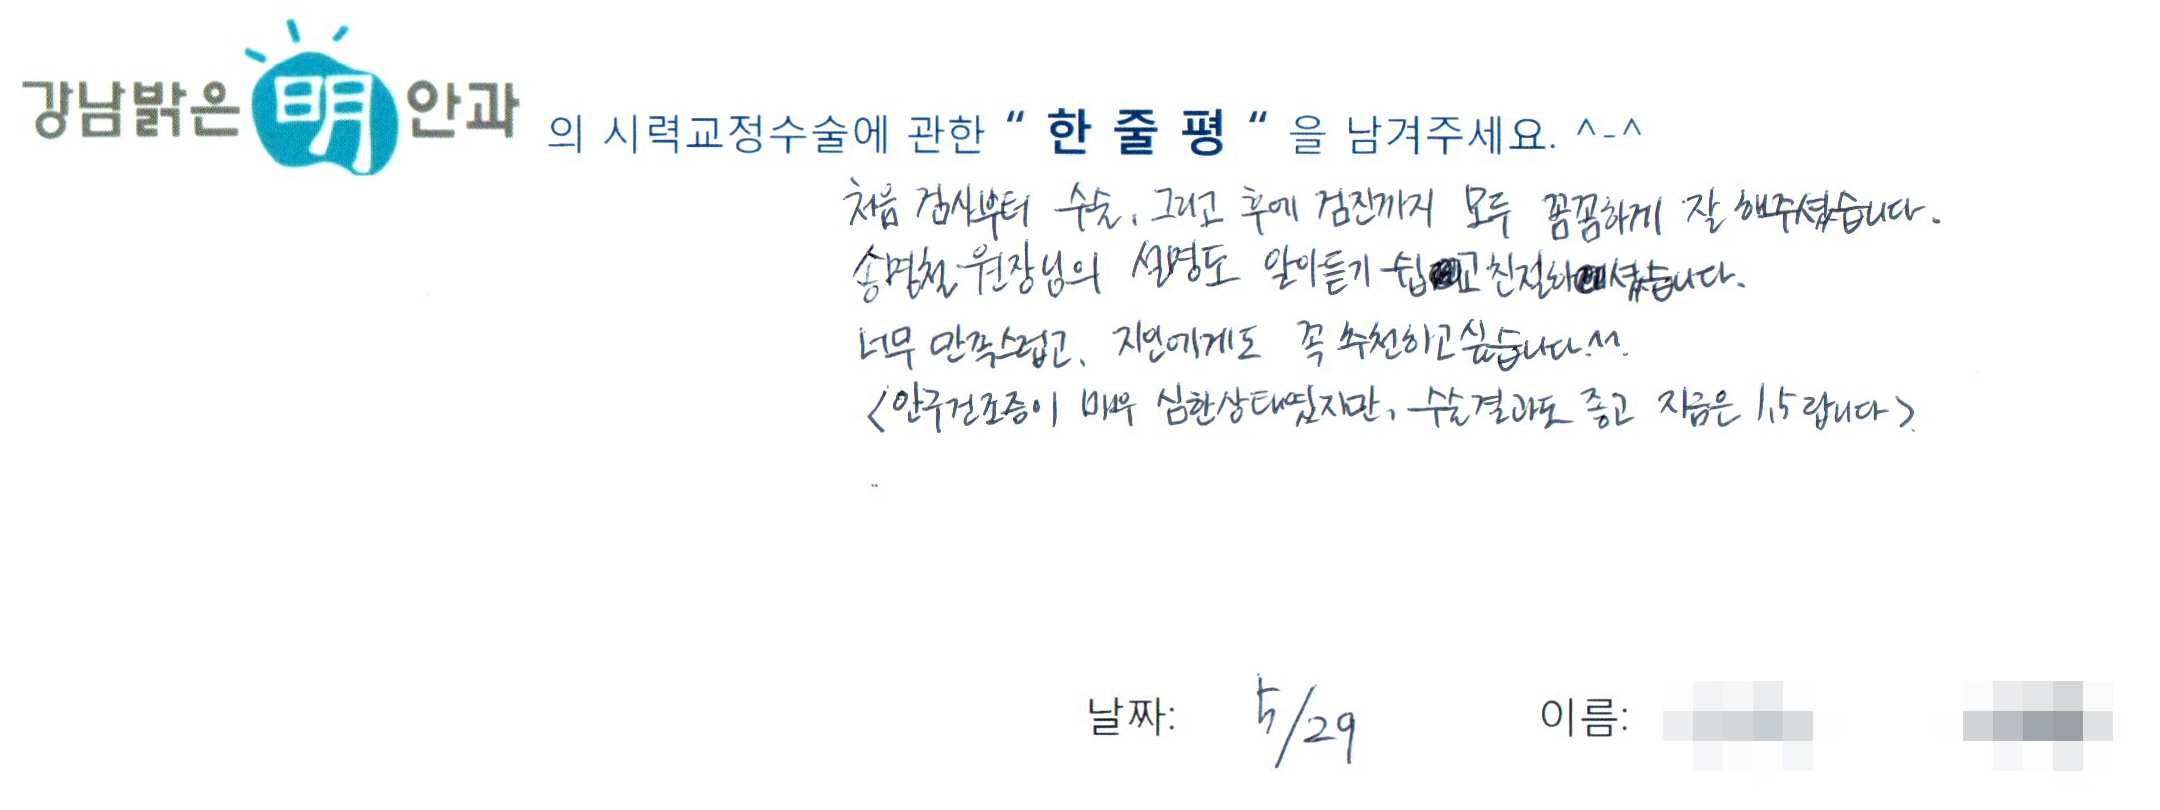 강남밝은 明 안과 의 시력교정수술에 관한 “ 한 줄 평 “ 을 남겨주세요. ^-^
처음 검사부터 수술, 그리고 후에 검진까지 모두 꼼꼼하게 잘 해주셨습니다.
송명철 원장님의 설명도 알아듣기 쉽고 친절하셨습니다.
너무 만족스럽고, 지인에게도 꼭 추천하고싶습니다.^^.
<안구건조증이 매우 심한상태였지만, 수술결과도 좋고 지금은 1.5랍니다>
날짜: 5/29 이름: